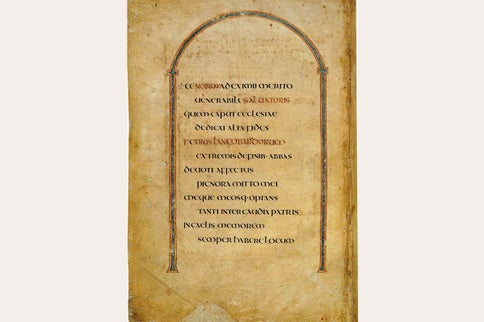 +CENOBIUM AD EXIMII MERITO
UENERABILE SALUATORIS
QUEM CAPUT ECCLESIAE
DEDICAT ALTA FIDES
PETRUS LANGOBARDORUM
EXTREMIS DE FINIB· ABBAS
DEUOTI AFFECTUS
PIGNORA MITTO MEI
MEQUE MEOSQ· OPTANS
TANTI INTER GAUDIA PATRIS
IN CAELIS MEMOREM
SEMPER HABERE LOCUM